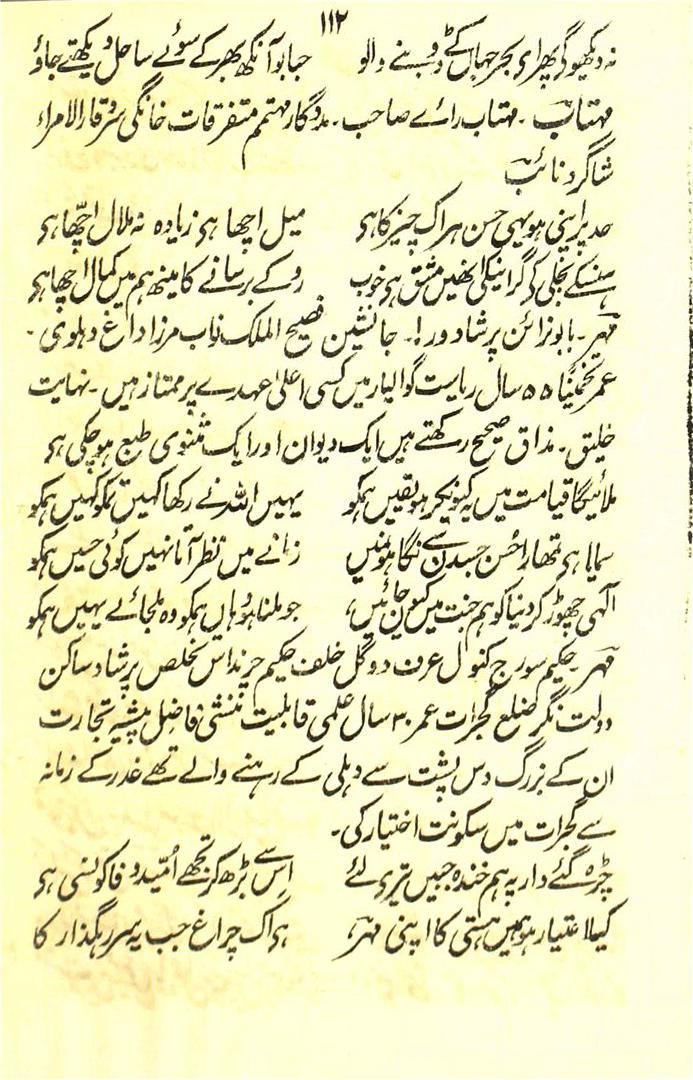 ۱۱۲
نہ دیکھوگے پھر اے بحر جہاں کے ڈوبنے والو حبابو آنکھ بھر کے سوئے ساحل دیکھتے جاؤ
مہتاب ۔ مہتاب رائے صاحب ۔ مددگار مہتمم متفرقات خانگی سر وقار الامراء
شاگرد نائب
حد پر اپنی ہو یہی حسن ہر اک چیز کا ہی میل اچھا ہی زیادہ نہ ملال اچھا ہی
ہنسکے بجلی کی گرانیکی انھیں مشق ہی خوب روکے برسانے کا مینھ ہم میں کمال اچھا ہی
مہر ۔ بابو نرائن پرشاد ورما ۔ جانشین فصیح الملک نواب مرزا داغ دہلوی ۔
عمر تخمیناً ۵۵ سال ریاست گوالیار میں کسی اعلیٰ عہدے پر ممتاز ہیں ۔ نہایت
خلیق ۔ مذاق صحیح رکھتے ہیں ایک دیوان اور ایک مثنوی طبع ہوچکی ہی
ملائیگا قیامت میں یہ کیونکر ہو یقیں ہمکو یہیں اللہ نے رکھا کہیں تمکو کہیں ہمکو
سمایا ہی تمھارا حسن جسدن سے نگاہونمیں زمانے میں نظر آتا نہیں کوئی حسیں ہمکو
الٰہی چھوڑ کر دنیا کو ہم جنت میں کیوں جائیں جو ملنا ہو وہاں ہمکو وہ ملجائے یہیں ہمکو
مہر ۔ حکیم سورج کنول عرف دوگل خلف حکیم ہرنداس تخلص پرشاد ساکن
دولت نگر ضلع گجرات عمر ۳۰ سال علمی قابلیت منشی فاضل پیشہ تجارت
ان کے بزرگ دس پشت سے دہلی کے رہنے والے تھے غدر کے زمانہ
سے گجرات میں سکونت اختیار کی ۔
چڑہ گئے دار پہ ہم خندہ جبیں تیرے لئے اس سے بڑھ کر تجھے امید وفا کونسی ہی
کیا اعتبار ہو ہمیں ہستی کا اپنی مہر ہی اک چراغ جب یہ سر رہگذار کا